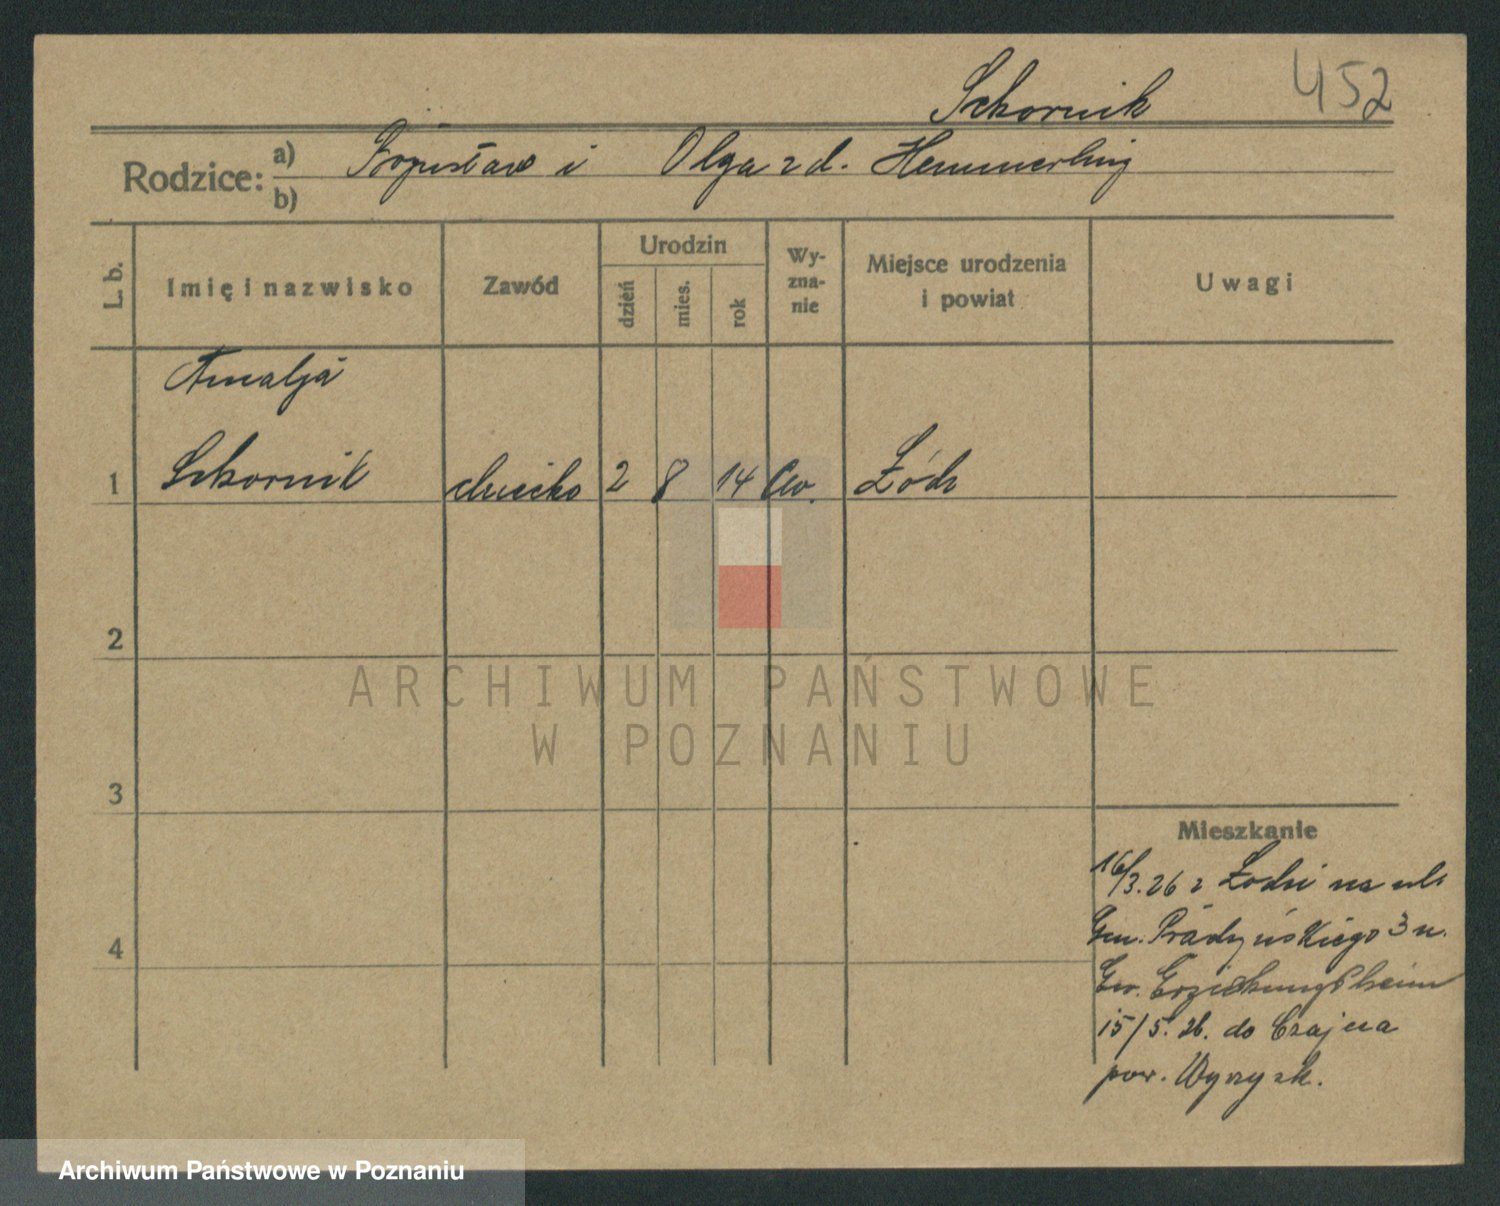 Szkornik 452
Rodzice: a) b) i Olga z d. Hemmerling
L. b.
Imię i nazwisko
Zawód
Urodzin
dzień
mies.
rok
Wy-
zna-
nie
Miejsce urodzenia
i powiat
Uwagi
Amalja
1 Szkornik dziecko 2 8 14 Ew. Łódź
2
3
4
Mieszkanie
16/3.26 z Łodzi na ul.
Gen. Prądzyńskiego 3 u.
Ew. Erziehungsheim
15/5.26. do Czajcza
pow. Wyrzysk.
ARCHIWUM PAŃSTWOWE
W POZNANIU
Archiwum Państwowe w Poznaniu